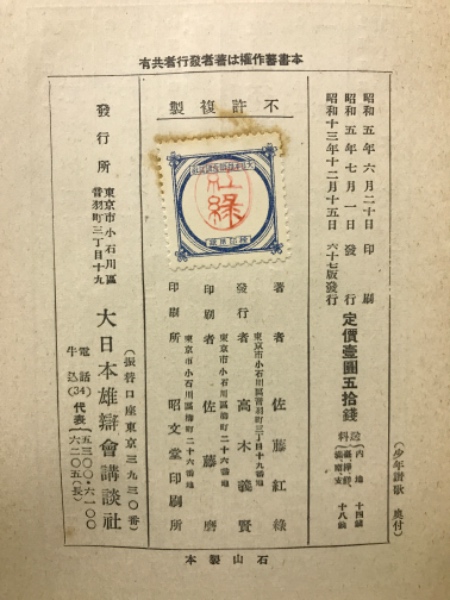 本書著作權は著者發行者共有
(少年讃歌 奧付)
昭和五年六月二十日印刷
昭和五年七月一日發行
昭和十三年十二月十五日 六十七版發行
定價壹圓五拾錢
送料
內地 十四錢
十八錢
不許複製
紅綠
著者 佐藤紅綠
東京市小石川區音羽町三丁目十九番地
發行者 高木義賢
東京市小石川區 町二十六番地
印刷者 佐藤磨
東京市小石川區 町二十六番地
印刷所 昭文堂印刷所
發行所
東京市小石川區
音羽町三丁目十九
大日本雄辯會講談社
(振替口座東京三九三〇番)
電話牛込(34)代表
五三〇〇・六一〇〇
六二〇五(長)
石山製本